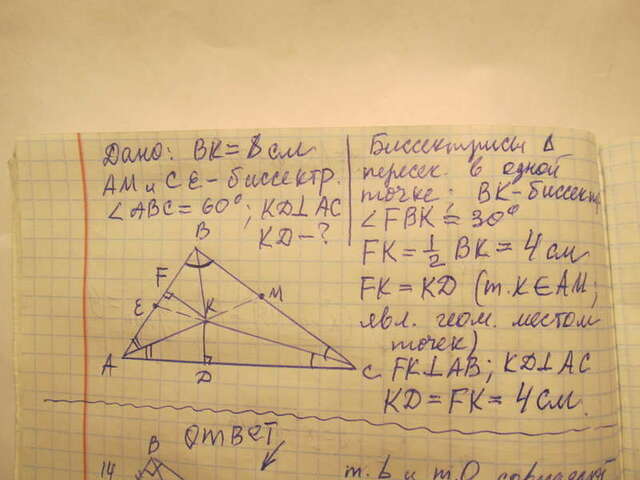 Дано: BK=8см
AM и CE-биссектр.
∠ABC=60°; KD⊥AC
KD-?
B
F
E
K
M
A
D
C
Биссектрисы Δ
пересек. в одной
точке; BK-биссектр
∠FBK=30°
FK=1/2 BK=4см
FK=KD (т.K∈AM;
явл. геом. местом
точек)
FK⊥AB; KD⊥AC
KD=FK=4см.
ответ
B
14
т. и т.O